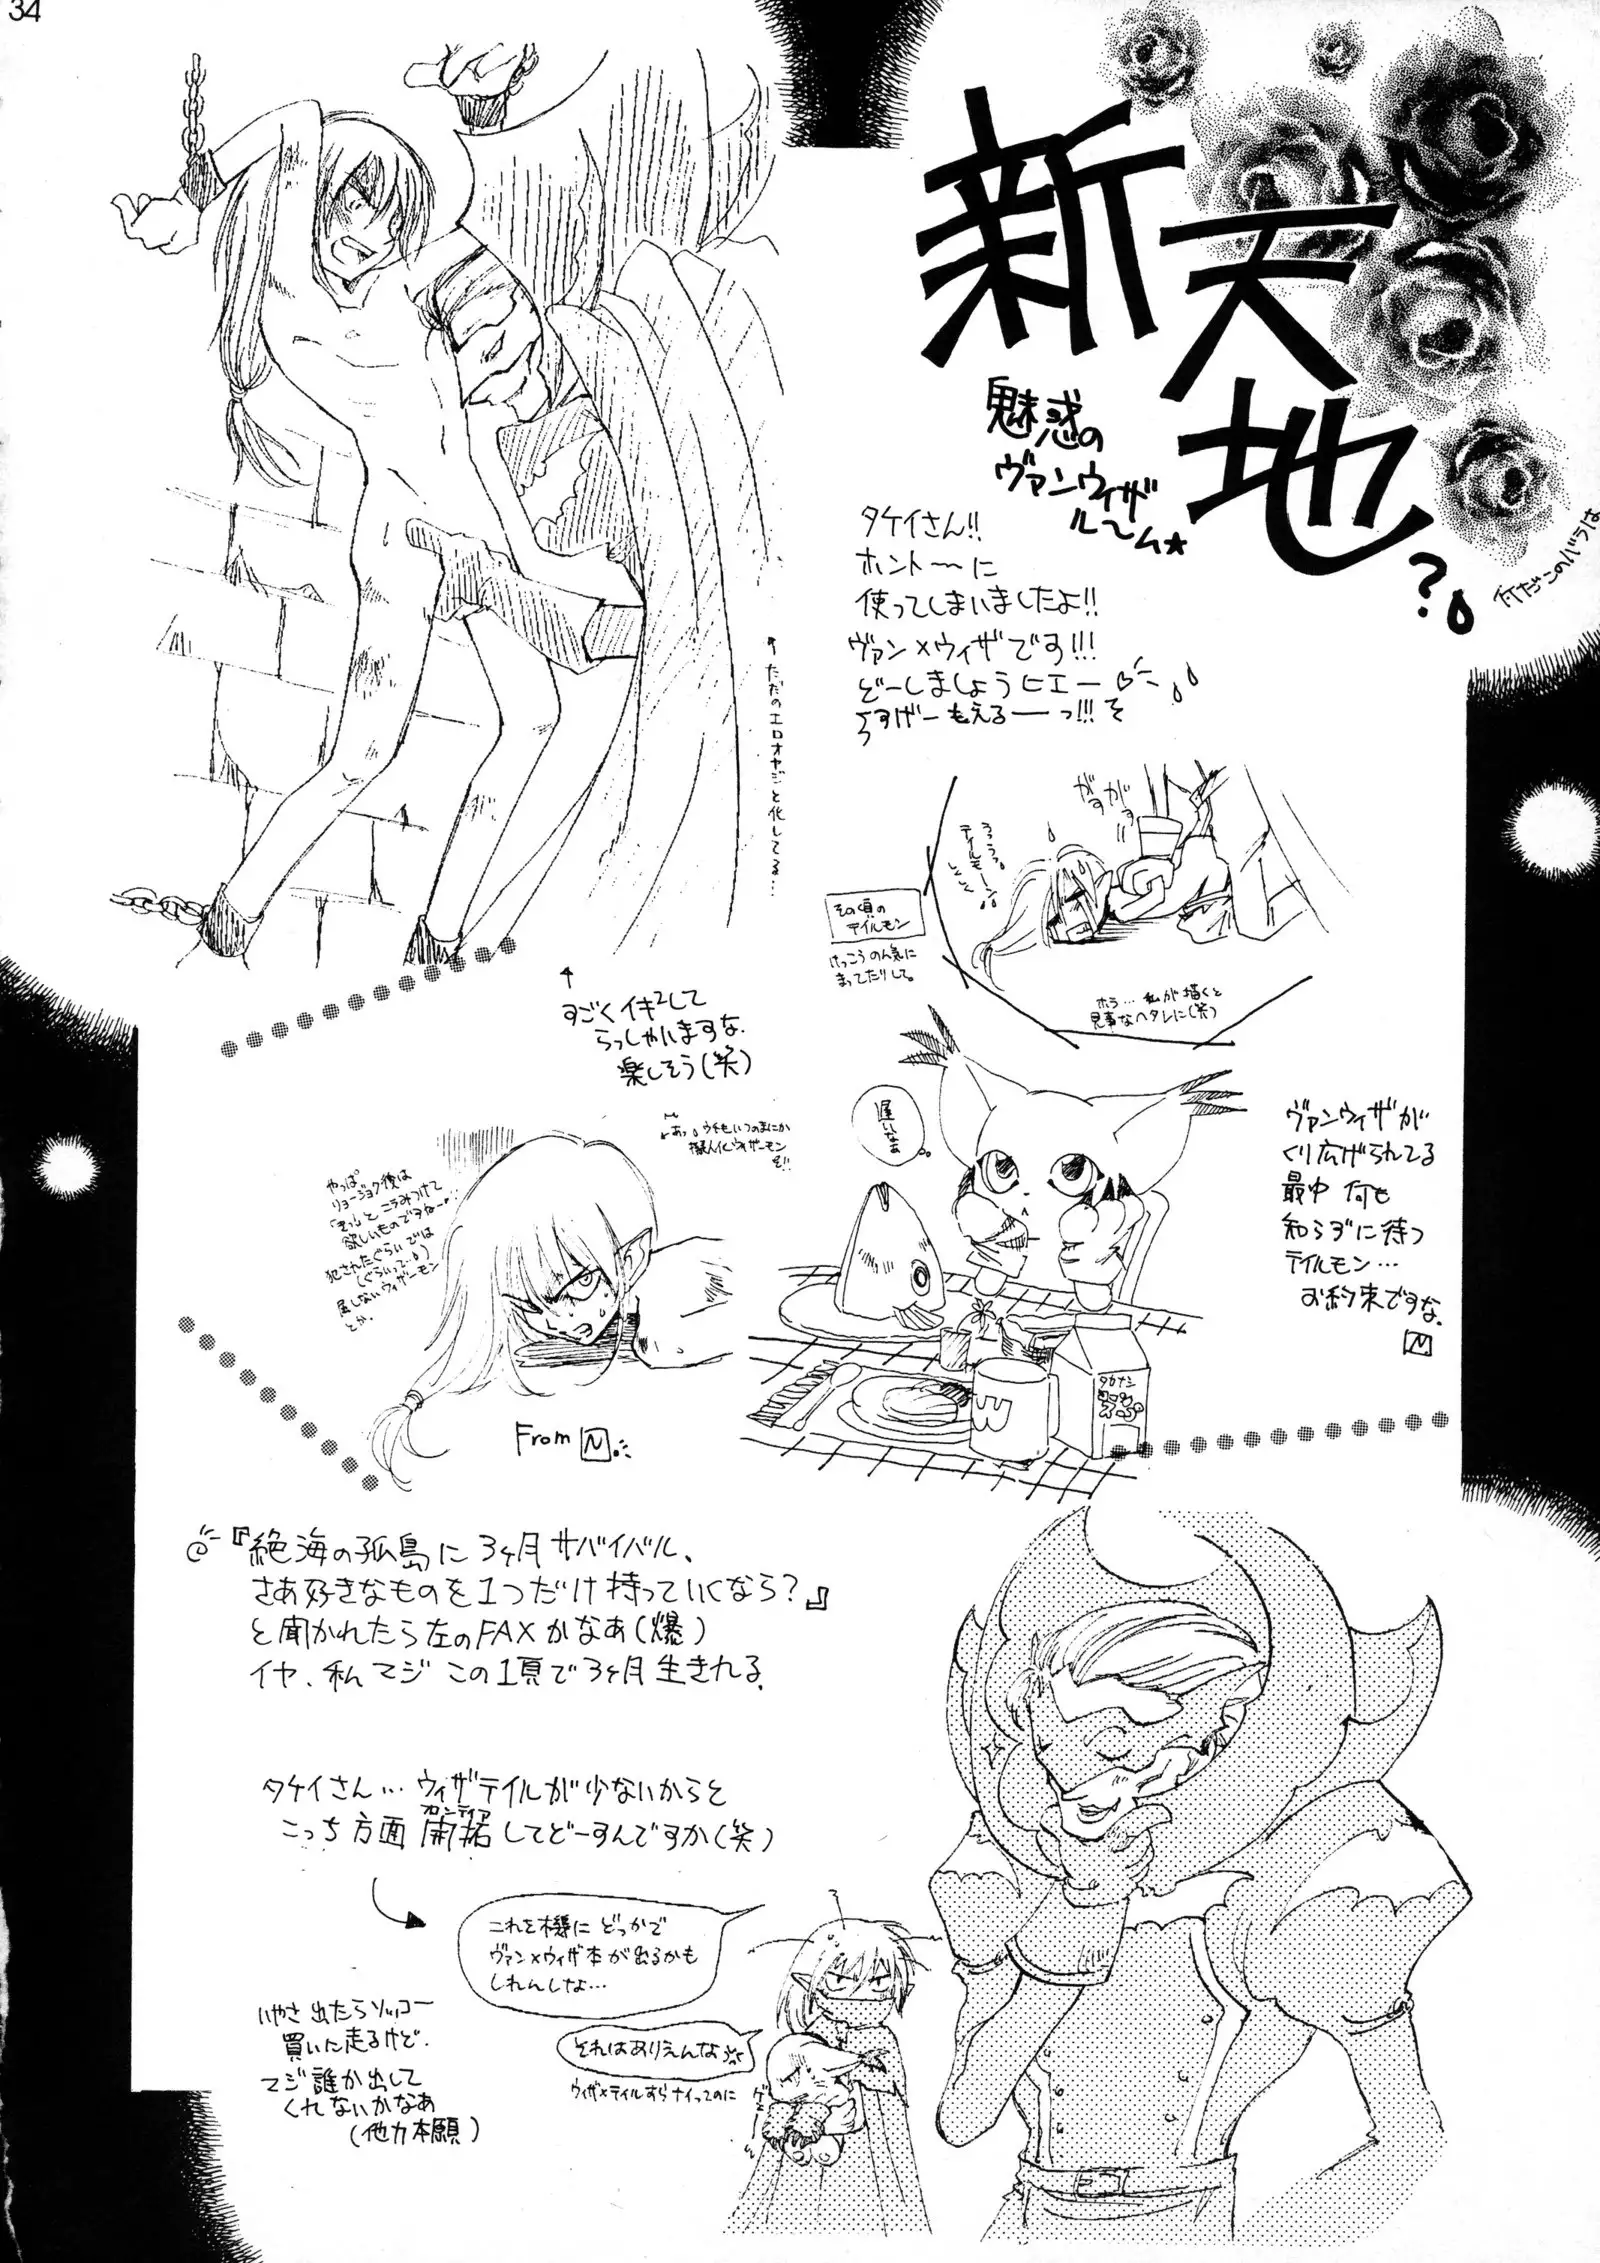 34
新天地?
魅惑の
ヴァンウィザ
ル〜ム★
何だこのバラは
タケイさん!!
ホント〜に
使ってしまいましたよ!!
ヴァン×ウィザです!!!
どーしましょうヒエー♡
うすげーもえるーっ!!!
↑ただのエロオヤジと化してる…
↑
すごくイキ²して
らっしゃいますな.
楽しそう(笑)
がすがす
うううっ
テイルモーン
その頃の
テイルモン
けっこうのん気に
まってたりして。
ホラ…私が描くと
見事なヘタレに(笑)
遅いなぁ
ヴァンウィザが
くり広げられてる
最中 何も
知らずに待つ
テイルモン…
お約束ですな.
N
タカナシ
あっ ウチもいつのまにか
擬人化ウィザーモン
だ!!
やっぱ
リョージョク後は
「きっ」とこうみつけて
欲しいものですねー
犯されたぐらいでは
(ぐらいって。)
屈しないウィザーモン
とか.
From N
『絶海の孤島に3ヶ月サバイバル、
さあ好きなものを1つだけ持っていくなら?』
と聞かれたら左のFAXかなあ(爆)
イヤ、私マジこの1頁で3ヶ月生きれる.
タケイさん…ウィザテイルが少ないからと
こっち方面 開拓してどーすんですか(笑)
フロンティア
これを機に どっかで
ヴァン×ウィザ本が出るかも
しれんしな…
それはありえんなぁ
ウィザ×テイルすらナイってのに
いやさ 出たらソッコー
買いに走るけど.
マジ誰か出して
くれないかなあ
(他力本願)